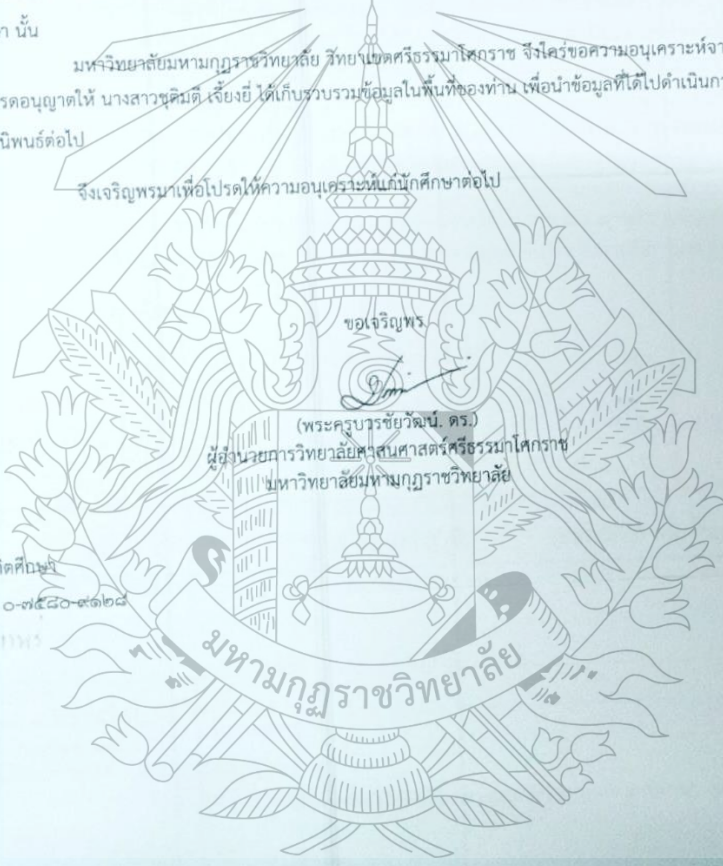 า นั้น
มหาวิทยาลัยมหามกุฏราชวิทยาลัย วิทยาเขตศรีธรรมาโศกราช จึงใคร่ขอความอนุเคราะห์จา
รดอนุญาตให้ นางสาวชุติมตี เจี้ยงยี่ ได้เก็บรวบรวมข้อมูลในพื้นที่ของท่าน เพื่อนำข้อมูลที่ได้ไปดำเนินกา
นิพนธ์ต่อไป
จึงเจริญพรมาเพื่อโปรดให้ความอนุเคราะห์แก่นักศึกษาต่อไป
ขอเจริญพร
(พระครูบวรชัยวัฒน์. ดร.)
ผู้อำนวยการวิทยาลัยศาสนศาสตร์ศรีธรรมาโศกราช
มหาวิทยาลัยมหามกุฏราชวิทยาลัย
ฑิตศึกษา
๐-๗๕๘๐-๙๑๒๘
มหามกุฏราชวิทยาลัย